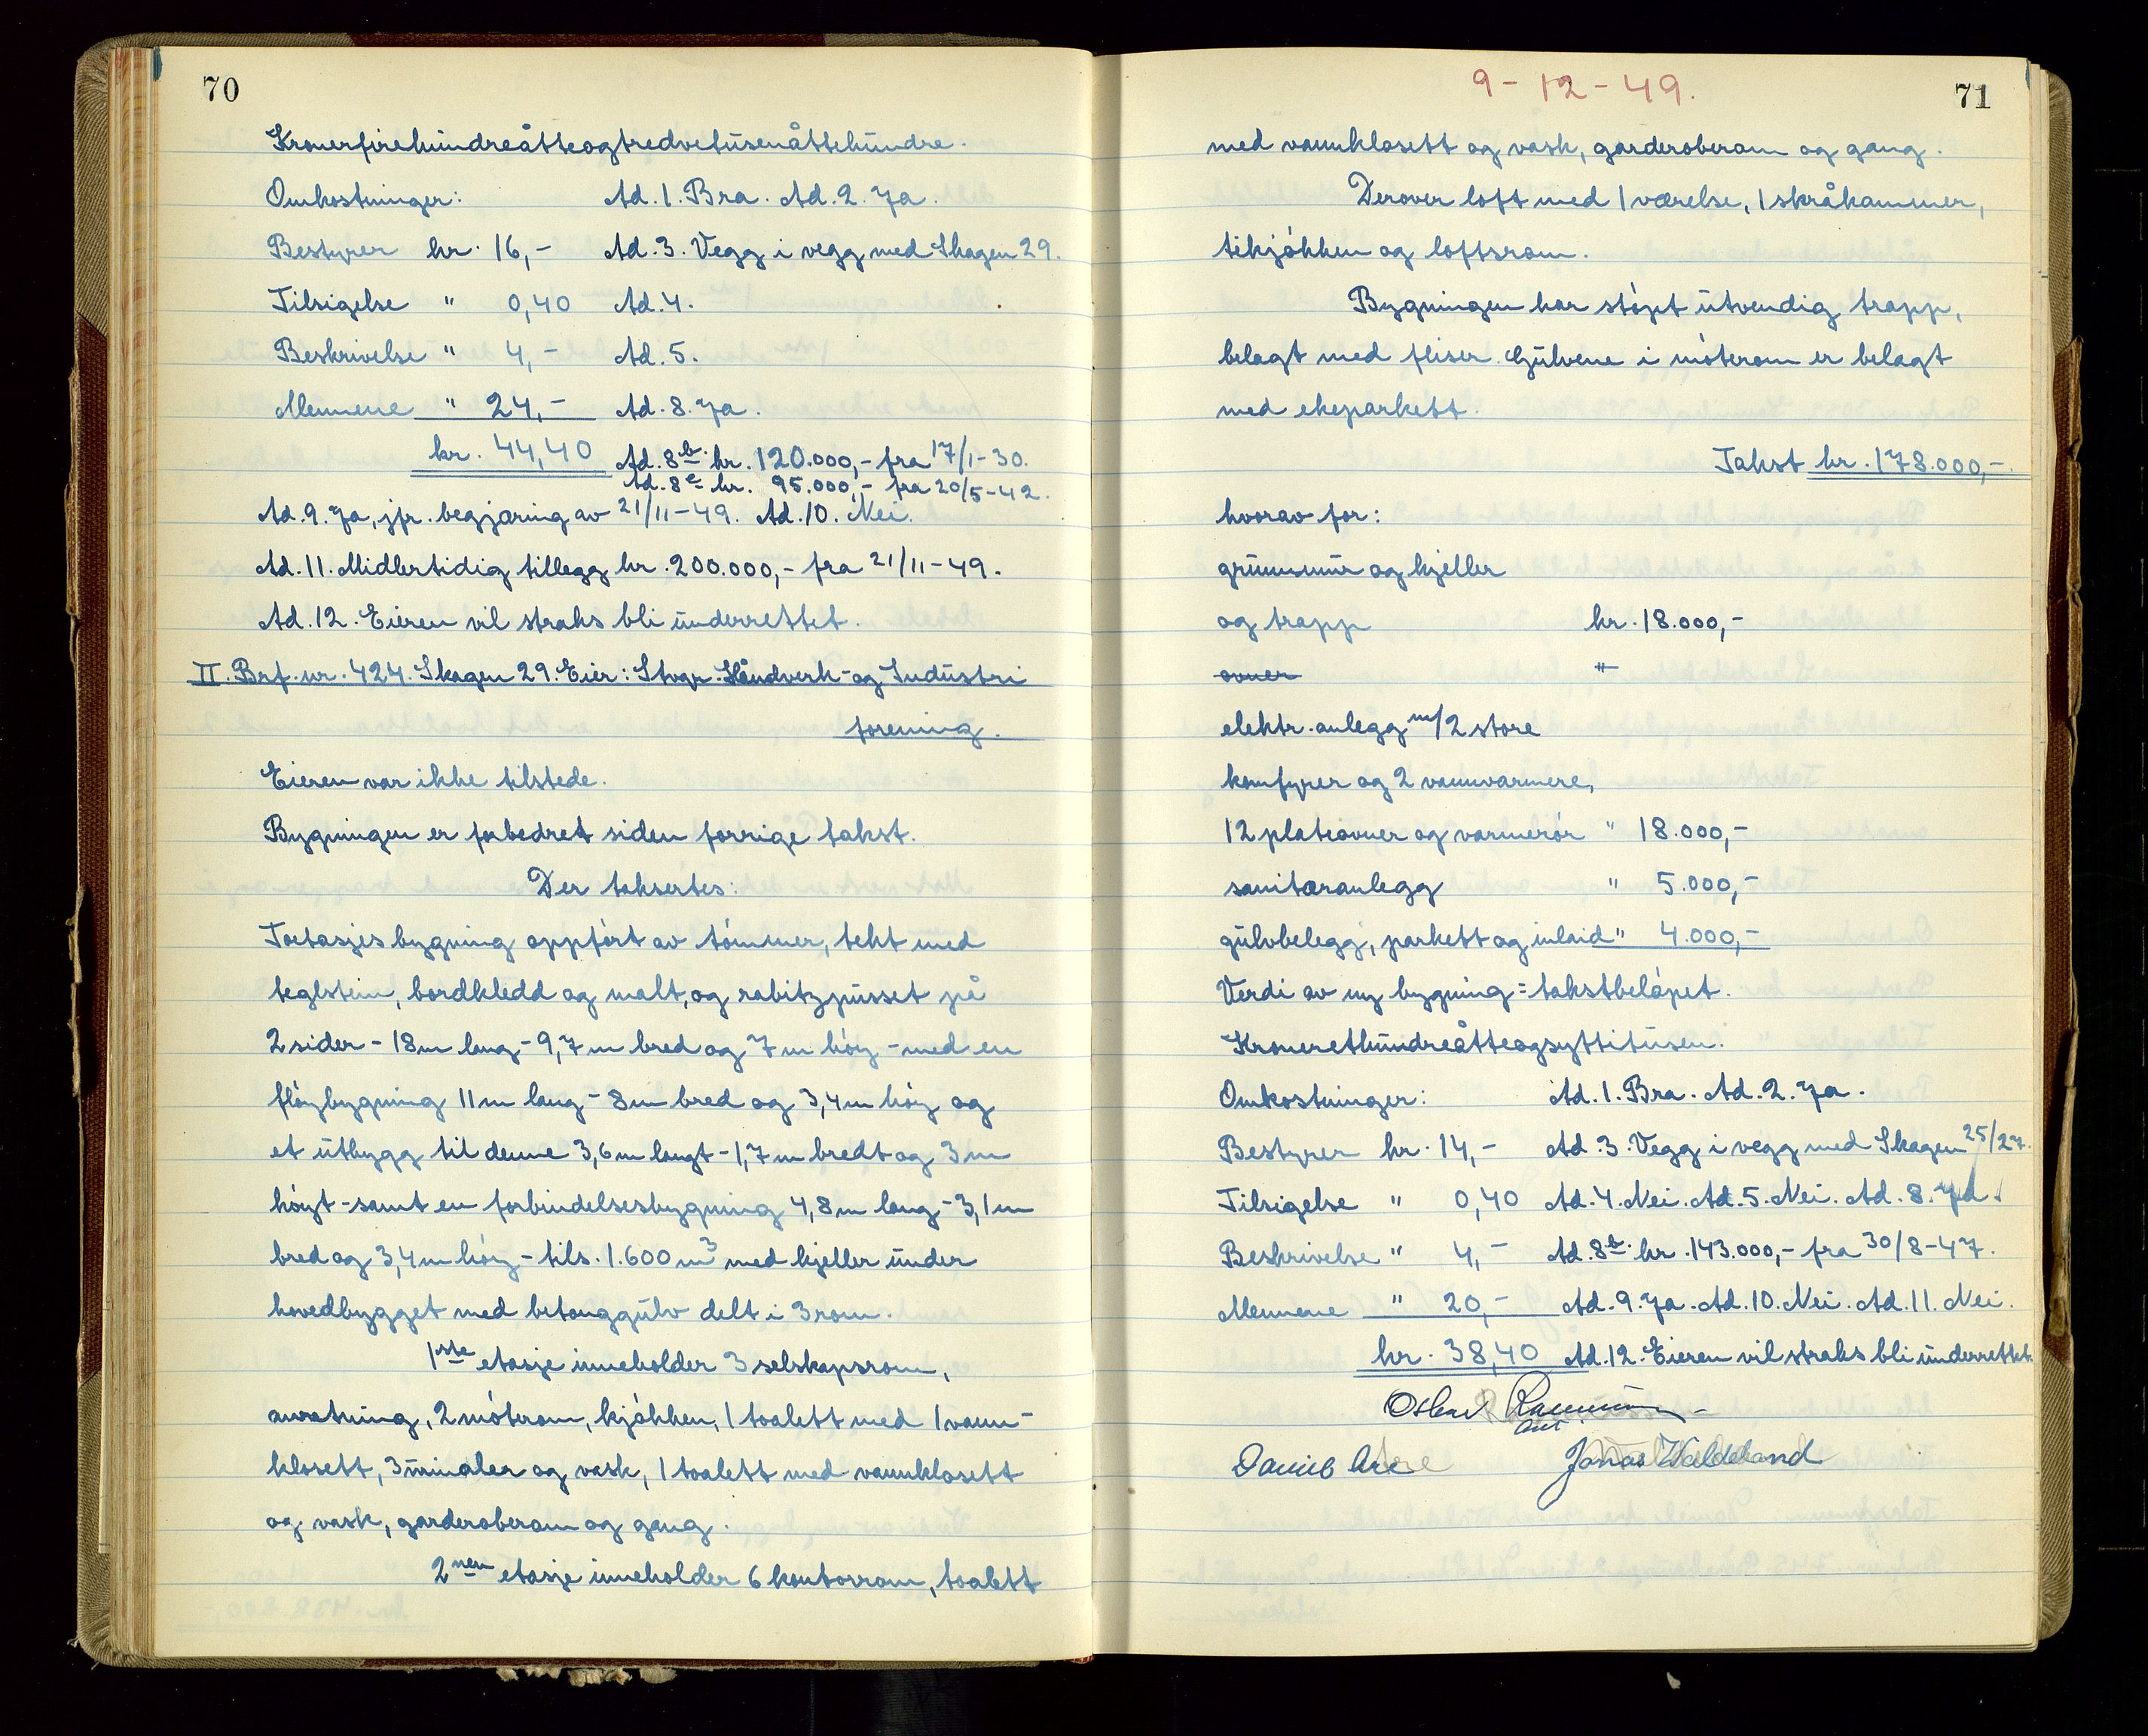 70
Kronerfirehundreåtteogtredvetusenåttehundre.
Omkostninger: Ad. 1. Bra. Ad. 2. Ja.
Bestyrer kr. 16,- Ad. 3. Vegg i vegg med Skagen 29.
Tilsigelse " 0,40 Ad. 4.
Beskrivelse " 4,- Ad. 5.
Mennene " 24,- Ad. 8. Ja.
kr. 44,40 Ad. 8 b. kr. 120.000,- fra 17/1-30.
Ad. 8 c kr. 95.000,- fra 20/5-42.
Ad. 9. Ja, jfr. begjæring av 21/11-49. Ad. 10. Nei.
Ad. 11. Midlertidig tillegg kr. 200.000,- fra 21/11-49.
Ad. 12. Eieren vil straks bli underrettet.
II. Brf. nr. 424. Skagen 29. Eier: Stvgr. Håndverk- og Industri
forening.
Eieren var ikke tilstede.
Bygningen er forbedret siden forrige takst.
Der taksertes:
Toetasjes bygning oppført av tømmer, tekt med
teglstein, bordkledd og malt, og rabitzpusset på
2 sider - 18 m lang - 9,7 m bred og 7 m høy - med en
fløybygning 11 m lang - 8 m bred og 3,4 m høy og
et utbygg til denne 3,6 m langt - 1,7 m bredt og 3 m
høyt - samt en forbindelsesbygning 4,8 m lang - 3,1 m
bred og 3,4 m høy - tils. 1.600 m³ med kjeller under
hovedbygget med betonggulv delt i 3 rom.
1ste etasje inneholder 3 selskapsrom,
anretning, 2 møterom, kjøkken, 1 toalett med 1 vann-
klosett, 3 urinaler og vask, 1 toalett med vannklosett
og vask, garderoberom og gang.
2nen etasje inneholder 6 kontorrom, toalett
9-12-49.
71
med vannklosett og vask, garderoberom og gang.
Derover loft med 1 værelse, 1 skråkammer,
tekjøkken og loftsrom.
Bygningen har støpt utvendig trapp,
belagt med fliser. Gulvene i møterom er belagt
med ekeparkett.
Takst kr. 178.000,-
hvorav for:
grunnmur og kjeller
og trapp kr. 18.000,-
ovner "
elektr. anlegg m/2 store
komfyrer og 2 vannvarmere,
12 plateovner og varmerør " 18.000,-
sanitæranlegg " 5.000,-
gulvbelegg, parkett og inlaid " 4.000,-
Verdi av ny bygning = takstbeløpet.
Kroneretthundreåtteogsyttitusen.
Omkostninger: Ad. 1. Bra. Ad. 2. Ja.
Bestyrer kr. 14,- Ad. 3. Vegg i vegg med Skagen 25/27.
Tilsigelse " 0,40 Ad. 4. Nei. Ad. 5. Nei. Ad. 8. Ja.
Beskrivelse " 4,- Ad. 8 b. kr. 143.000,- fra 30/8-47.
Mennene " 20,- Ad. 9. Ja. Ad. 10. Nei. Ad. 11. Nei.
kr. 38,40 Ad. 12. Eieren vil straks bli underrettet.
Oskar
Jonas Waldeland